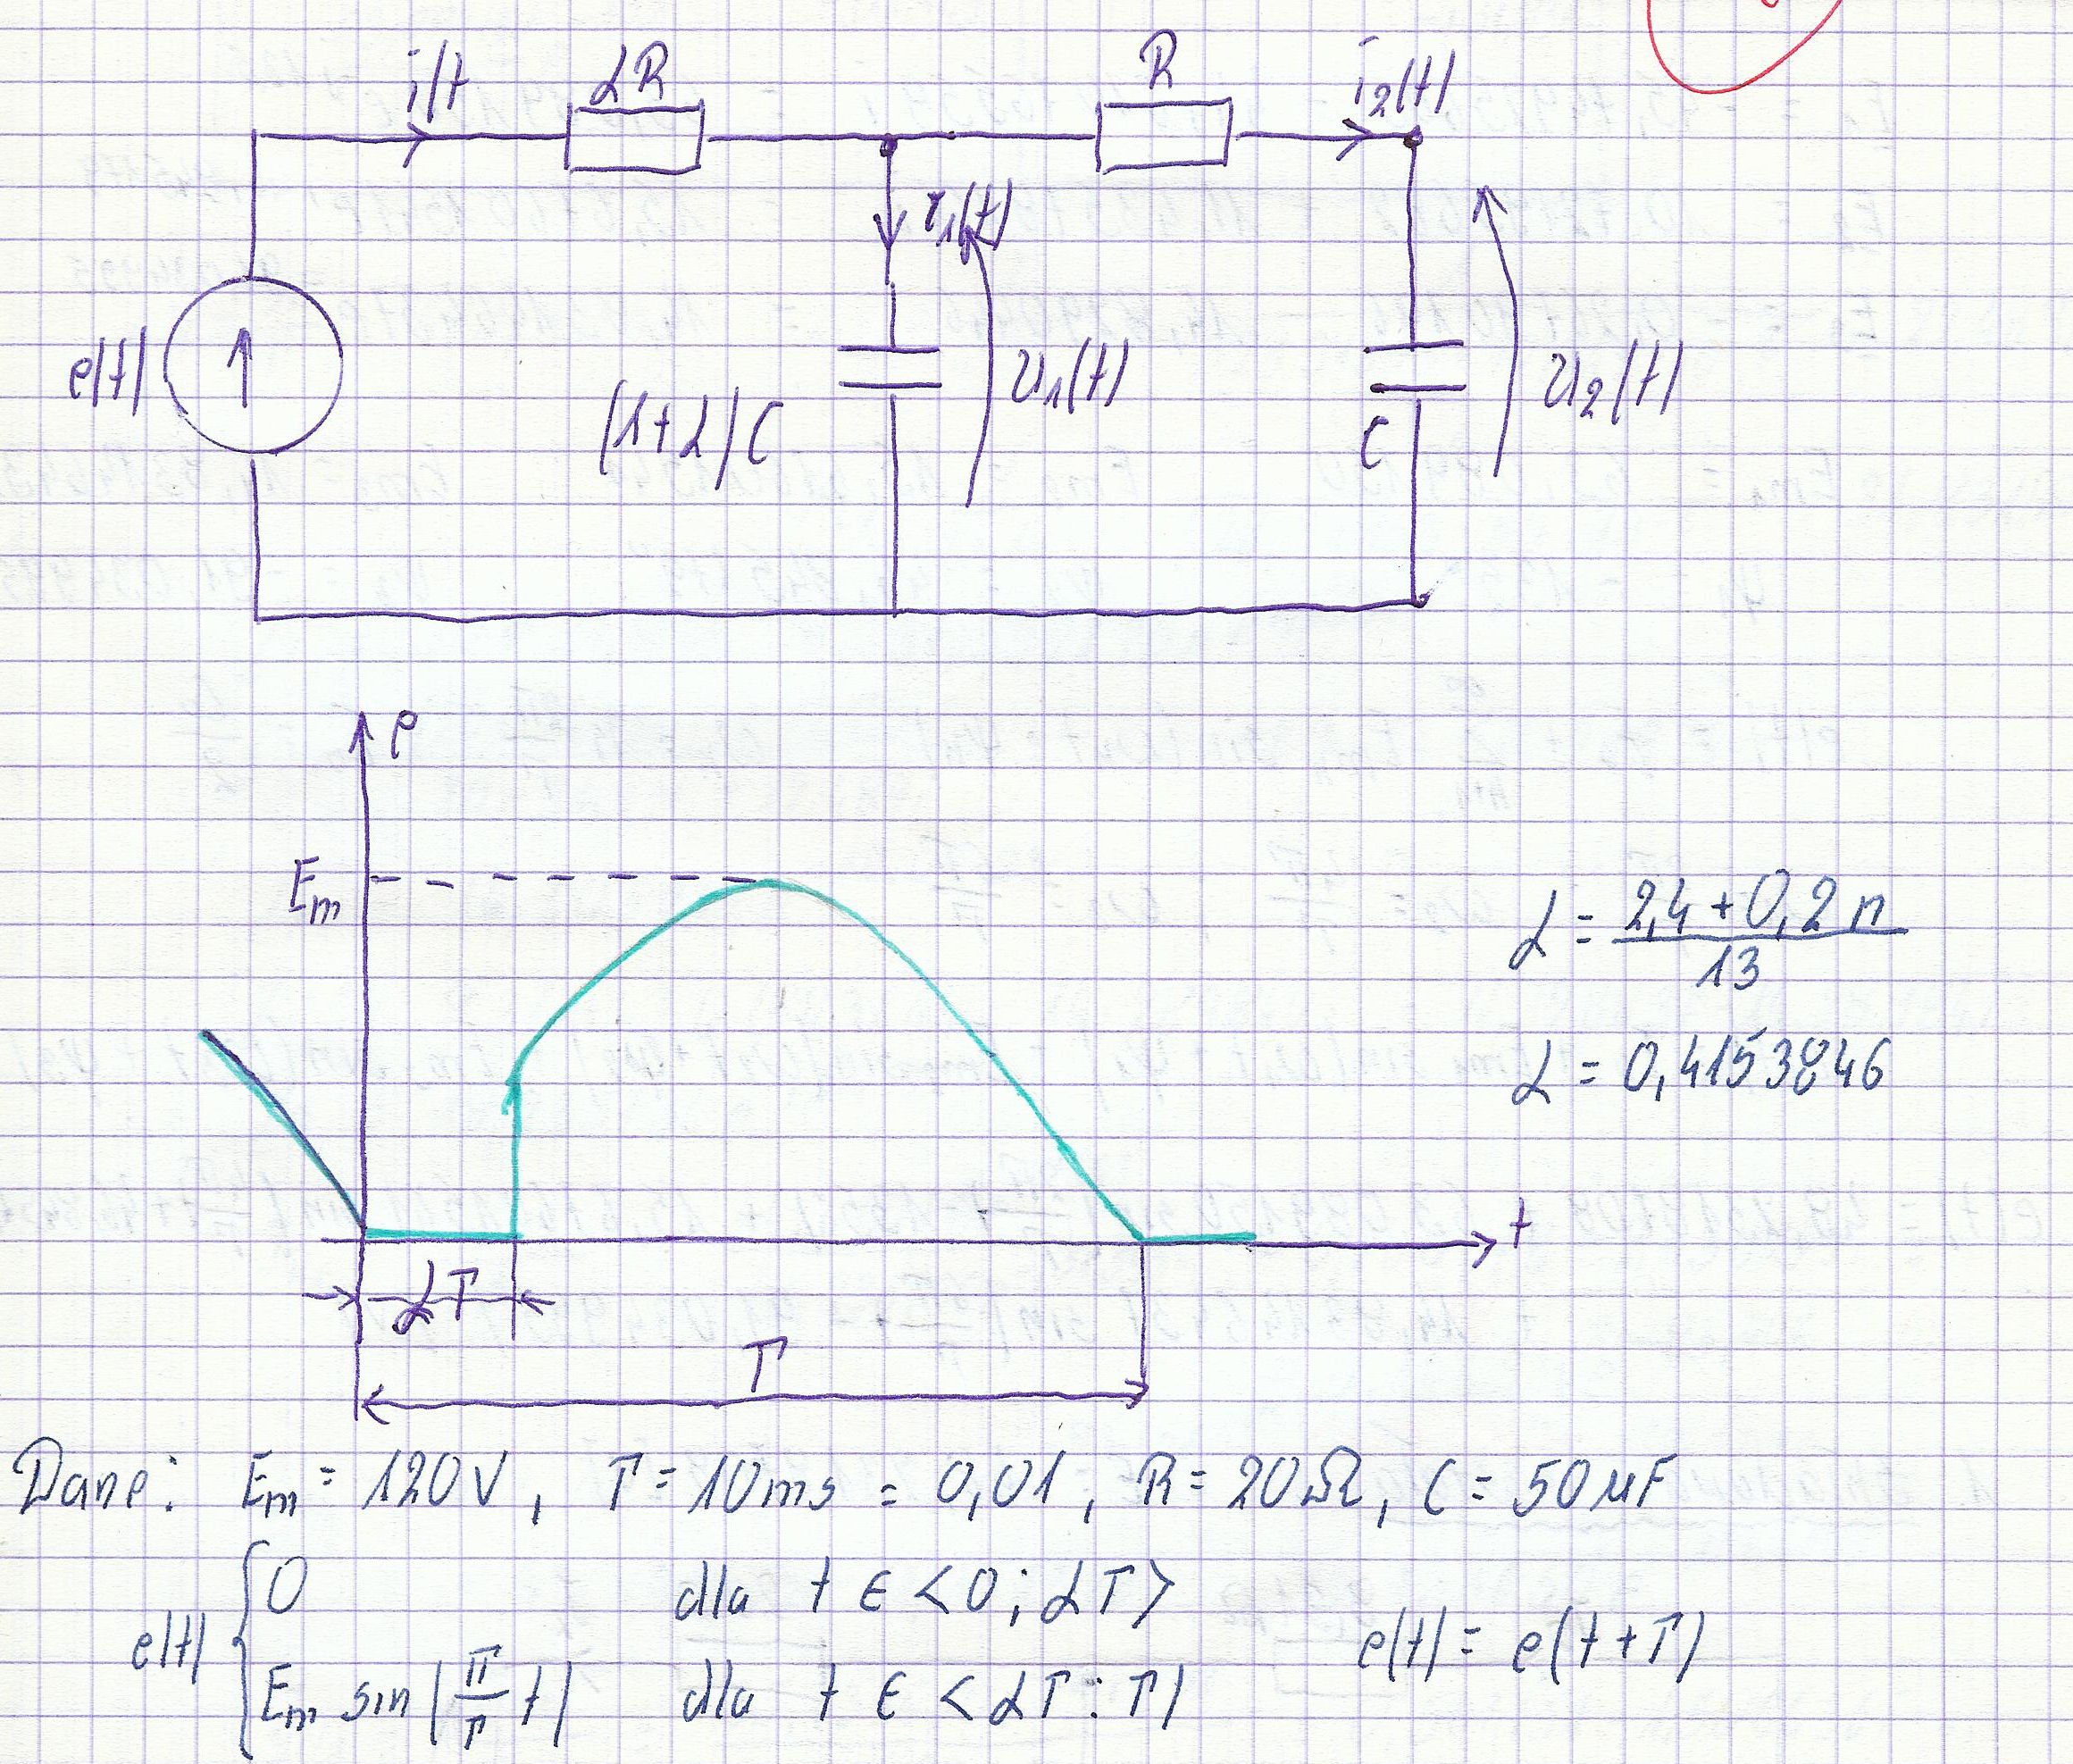 i(t) αR R i₂(t)
i₁(t)
e(t) (1+α)C u₁(t) C u₂(t)
e
Em
α = (2,4 + 0,2 n) / 13
α = 0,4153846
t
αT
T
Dane: Em = 120V, T = 10ms = 0,01, R = 20Ω, C = 50μF
e(t) { 0 dla t ∈ <0; αT>
Em sin(π/T t) dla t ∈ <αT : T) e(t) = e(t+T)